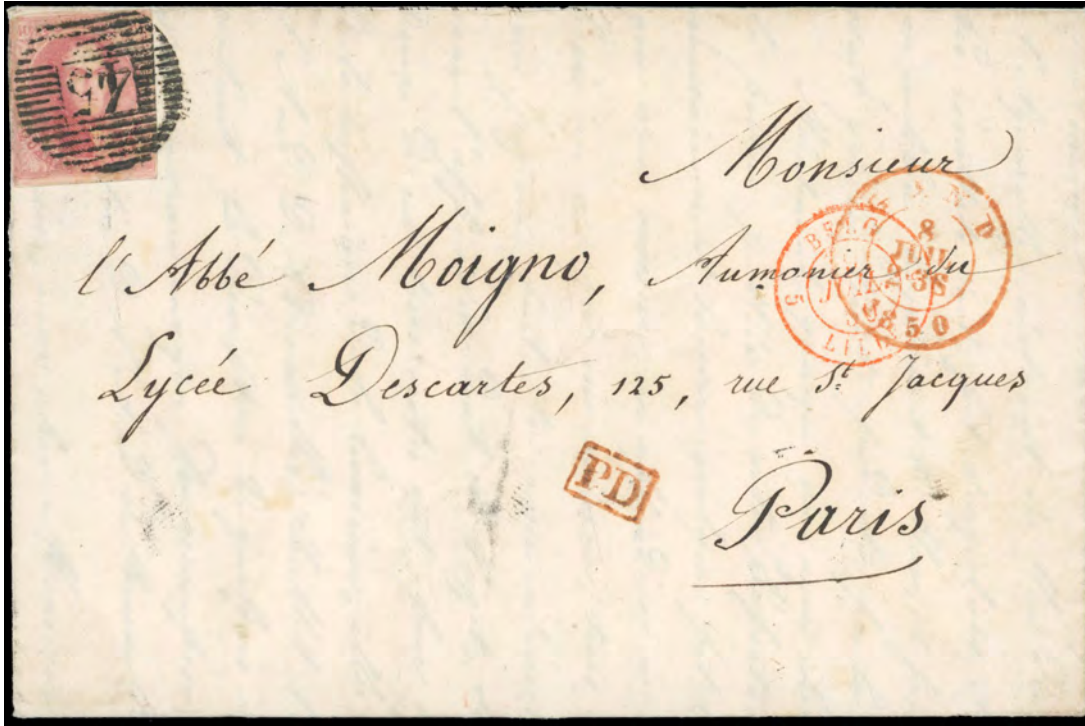 45
Monsieur
l'Abbé Moigno, Aumonier du
Lycée Descartes, 125, rue St Jacques
Paris
PD
GAND
8
JUIN
1850
5 BELG.
JUIN
LILLE